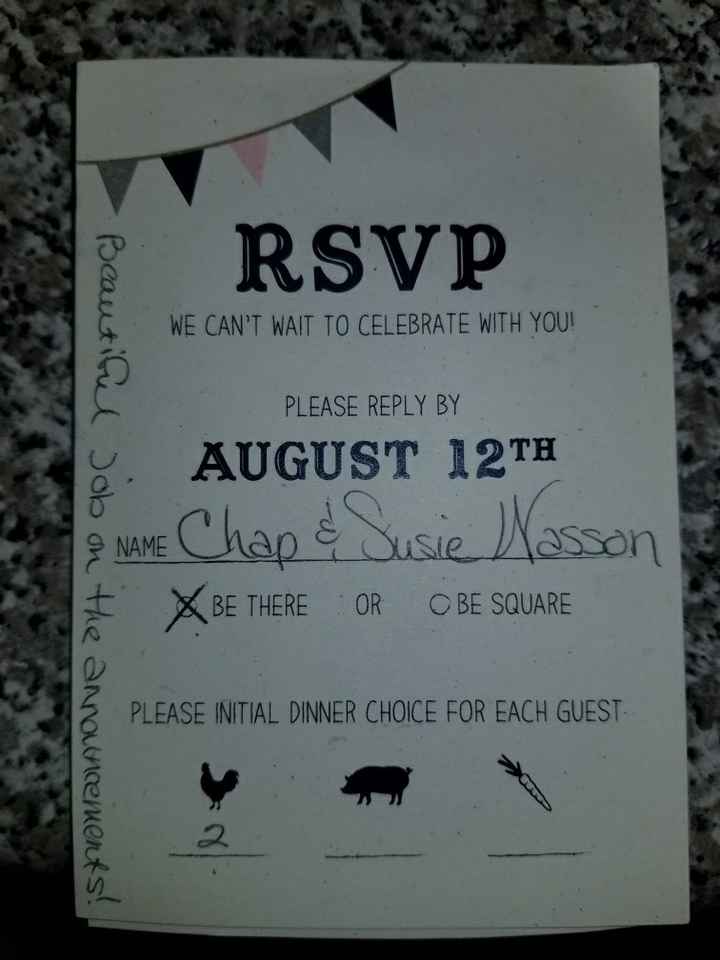 RSVP
WE CAN'T WAIT TO CELEBRATE WITH YOU!
PLEASE REPLY BY
AUGUST 12TH
NAME Chap & Susie Wasson
BE THERE OR BE SQUARE
PLEASE INITIAL DINNER CHOICE FOR EACH GUEST
2
Beautiful Job on the announcements!